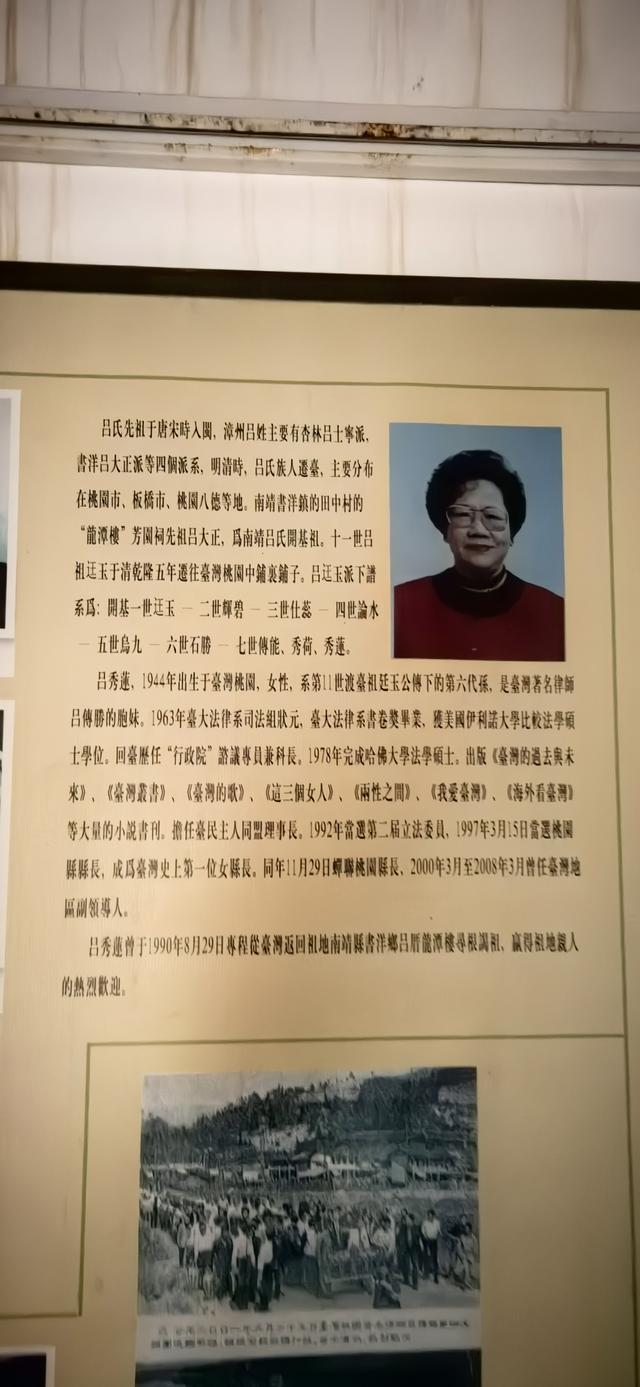 吕氏先祖于唐宋時入閩，漳州吕姓主要有杏林吕士寧派，
書洋吕大正派等四個派系，明清時，吕氏族人遷臺，主要分布
在桃園市、板橋市、桃園八德等地。南靖書洋鎮的田中村的
“龍潭樓”芳園祠先祖吕大正，爲南靖吕氏開基祖。十一世吕
祖廷玉于清乾隆五年遷往臺灣桃園中鋪裏鋪子。吕廷玉派下譜
系爲：開基一世廷玉 — 二世輝碧 — 三世仕蕊 — 四世論水
— 五世烏九 — 六世石勝 — 七世傳能、秀荷、秀蓮。
吕秀蓮，1944年出生于臺灣桃園，女性，系第11世渡臺祖廷玉公傳下的第六代孫，是臺灣著名律師
吕傳勝的胞妹。1963年臺大法律系司法組狀元，臺大法律系書卷獎畢業，獲美國伊利諾大學比較法學碩
士學位。回臺歷任“行政院”諮議專員兼科長。1978年完成哈佛大學法學碩士。出版《臺灣的過去與未
來》、《臺灣叢書》、《臺灣的歌》、《這三個女人》、《兩性之間》、《我爱臺灣》、《海外看臺灣》
等大量的小說書刊。擔任臺民主人同盟理事長。1992年當選第二屆立法委員，1997年3月15日當選桃園
縣縣長，成爲臺灣史上第一位女縣長。同年11月29日蟬聯桃園縣長、2000年3月至2008年3月曾任臺灣地
區副領導人。
吕秀蓮曾于1990年8月29日專程從臺灣返回祖地南靖縣書洋鄉吕厝龍潭樓尋根謁祖，贏得祖地親人
的熱烈歡迎。